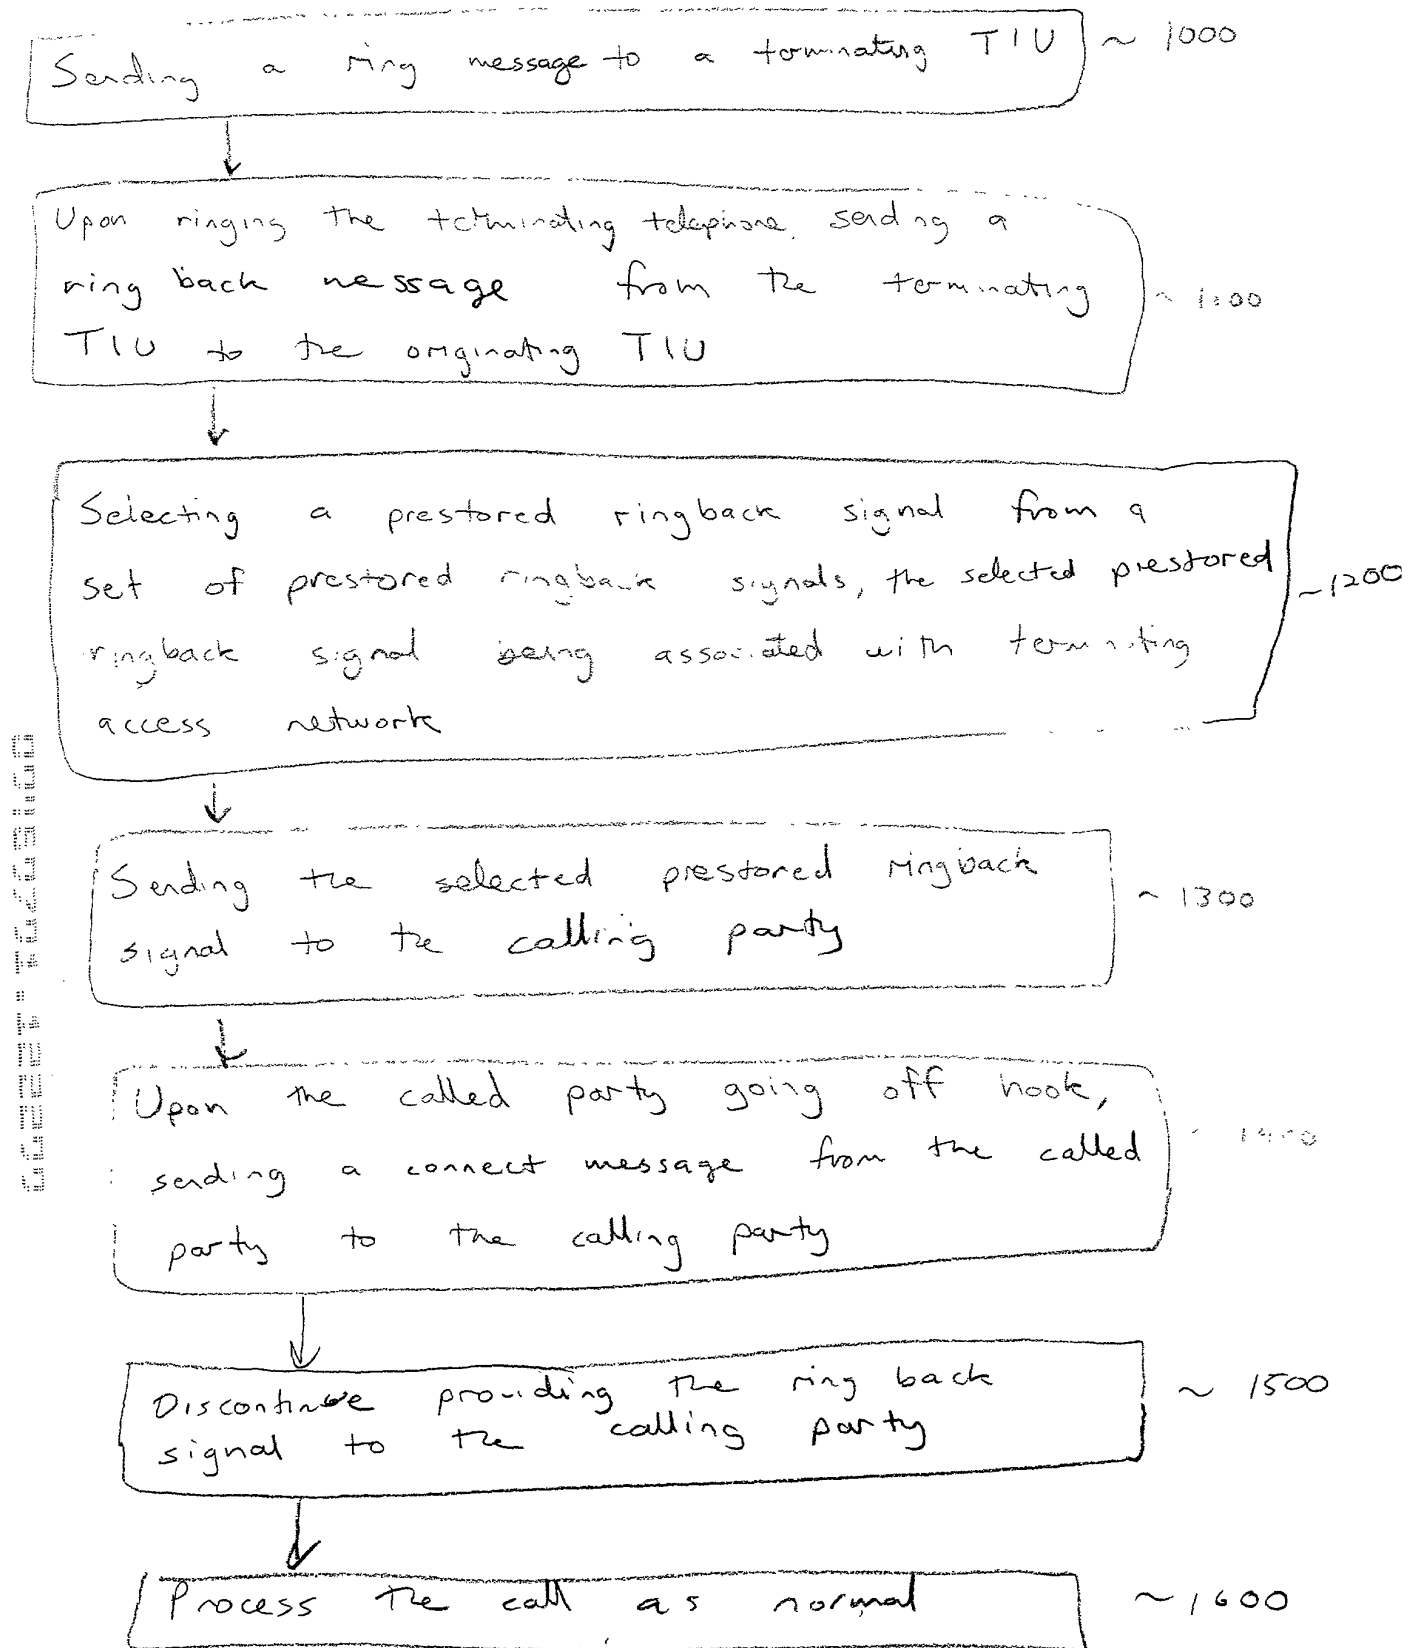 Sending a ring message to a terminating TIU ~ 1000
Upon ringing the terminating telephone, sending a
ring back message from the terminating ~ 1100
TIU to the originating TIU
Selecting a prestored ringback signal from a
set of prestored ringback signals, the selected prestored ~1200
ringback signal being associated with terminating
access network
Sending the selected prestored ringback ~ 1300
signal to the calling party
Upon the called party going off hook,
sending a connect message from the called ~ 1400
party to the calling party
Discontinue providing the ring back ~ 1500
signal to the calling party
Process the call as normal ~1600